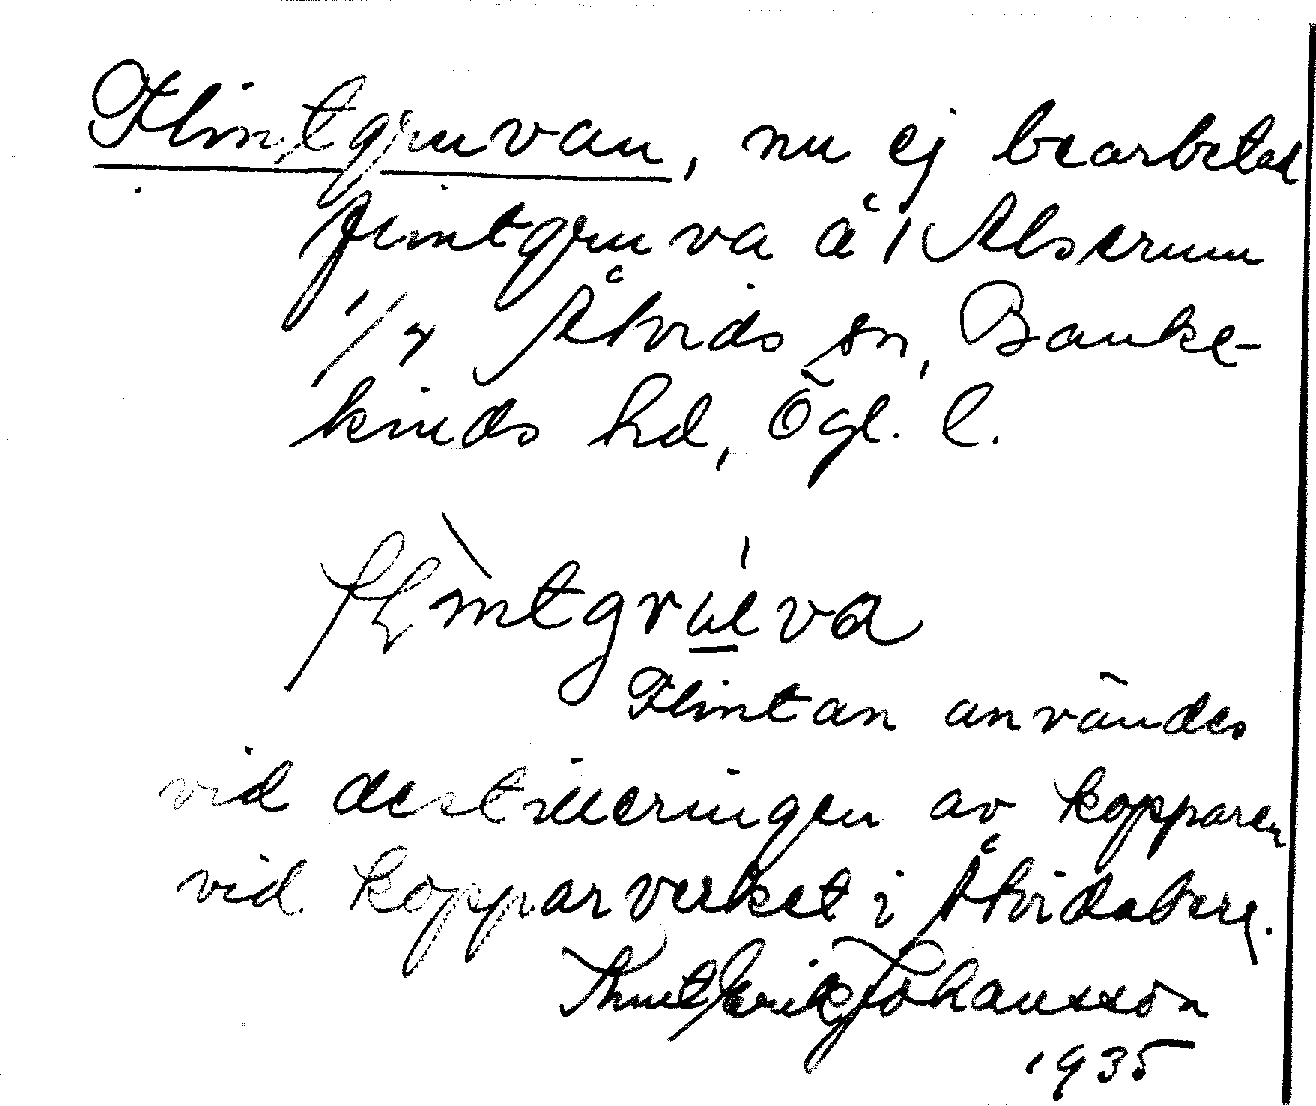 Flintgruvan, nu ej bearbetad
flintgruva å 1 Alserum
1/4 Åtvids sn, Banke-
kinds hd, Ögl. l.
flintgruva
Flintan användes
vid destilleringen av kopparen
vid kopparverket i Åtvidaberg.
Knut Erik Johansson
1935